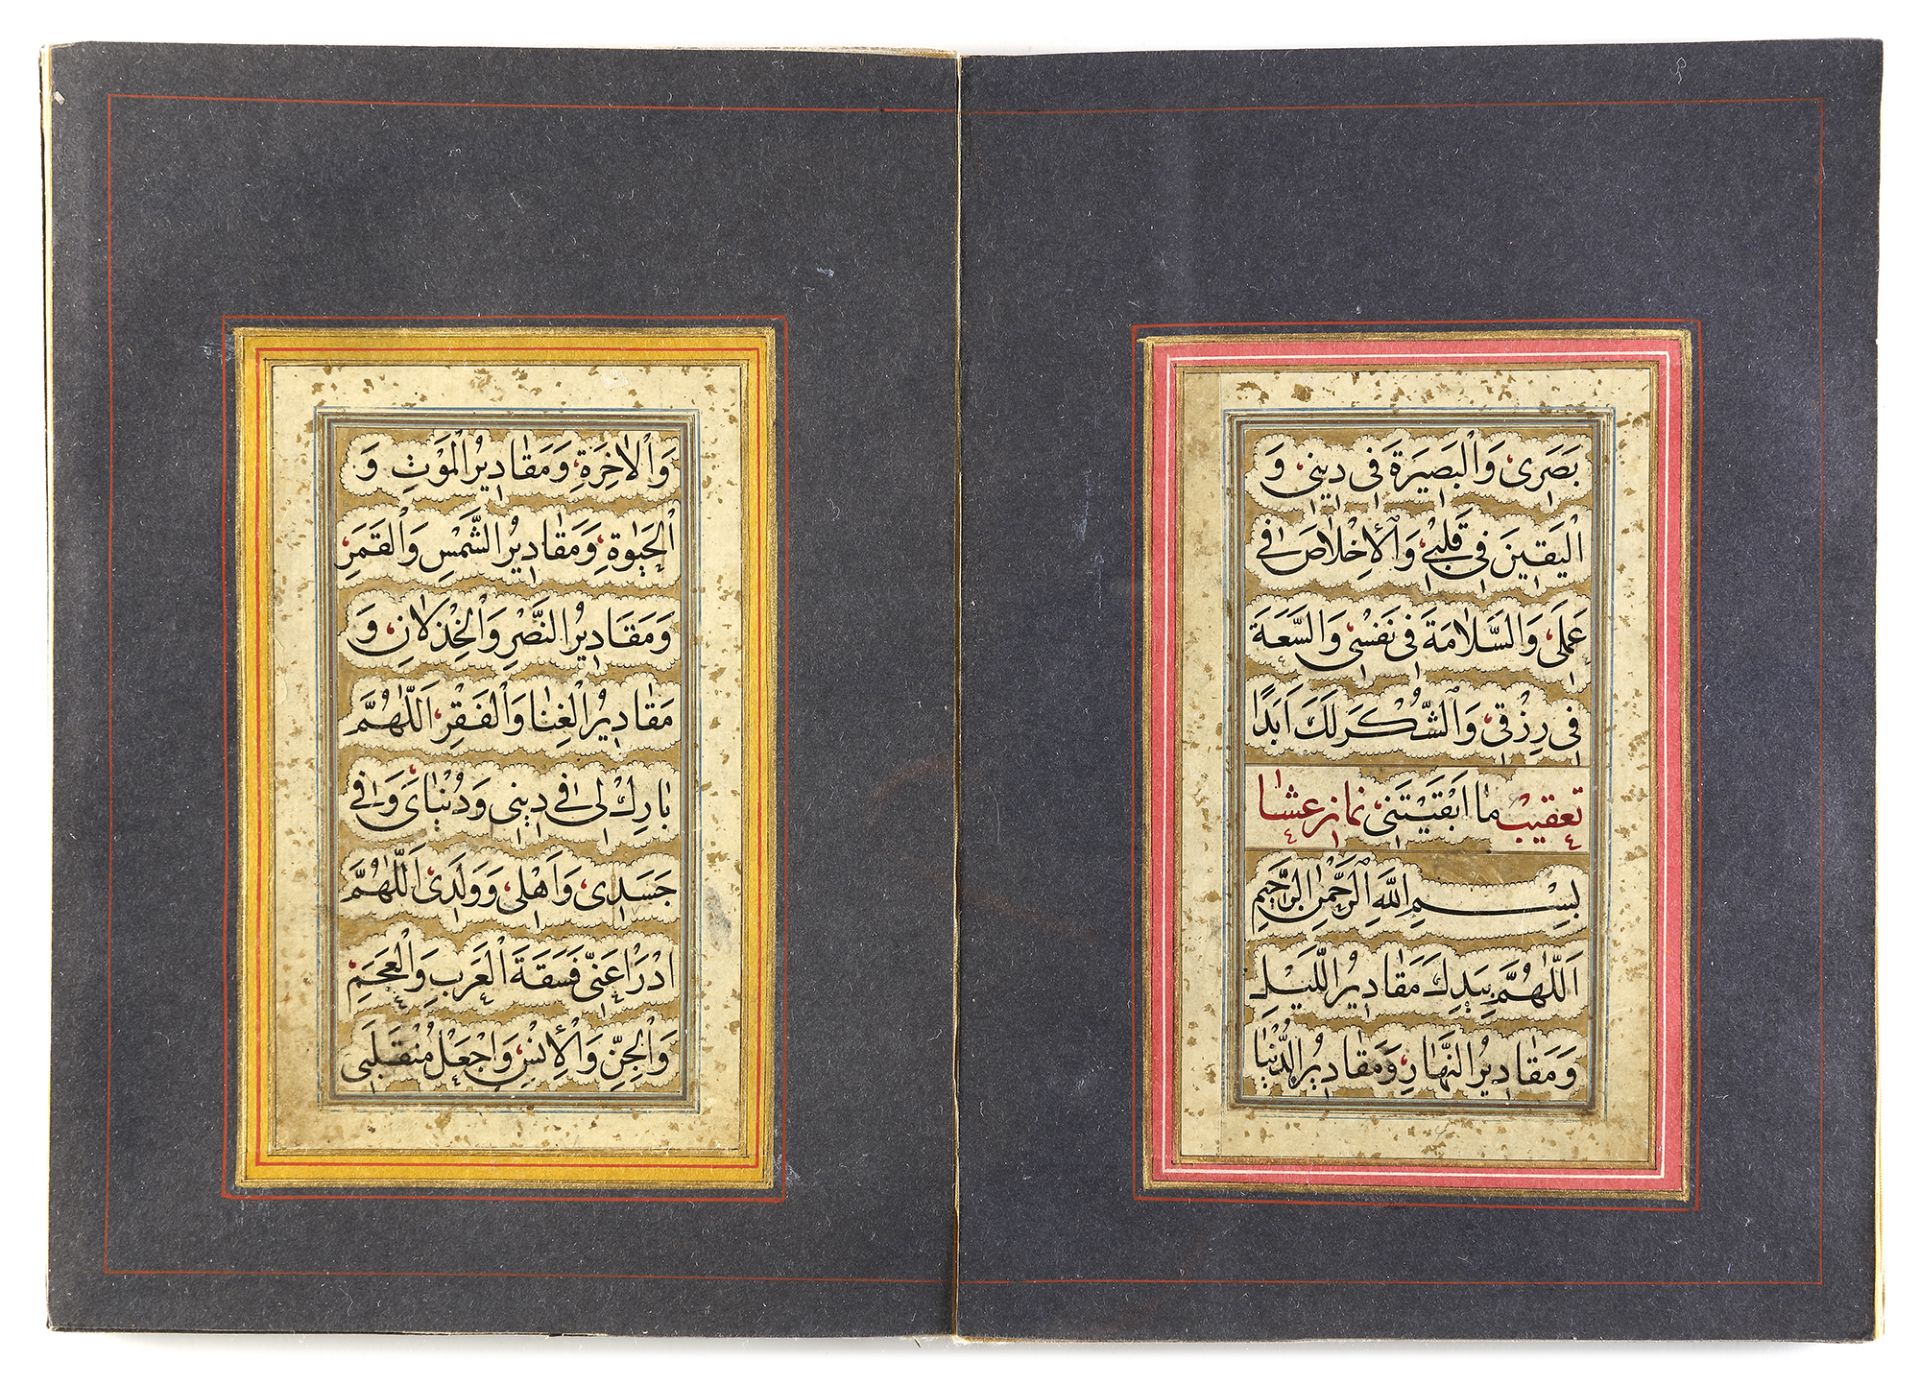 بَصَرِی وَالْبَصِیرَةَ فِی دِینِی وَ
الْیَقِینَ فِی قَلْبِی وَالْاِخْلَاصَ فِی
عَمَلِی وَالسَّلَامَةَ فِی نَفْسِی وَالسَّعَةَ
فِی رِزْقِی وَالشُّکْرَ لَكَ اَبَدًا
تعقیب مَا اَبْقَیْتَنِی نماز عشا
بِسْمِ اللّٰهِ الرَّحْمٰنِ الرَّحِیمِ
اَللّٰهُمَّ بِیَدِكَ مَقَادِیرُ اللَّیْلِ
وَمَقَادِیرُ النَّهَارِ وَمَقَادِیرُ الدُّنْیَا
وَالْاٰخِرَةِ وَمَقَادِیرُ الْمَوْتِ وَ
الْحَیٰوةِ وَمَقَادِیرُ الشَّمْسِ وَالْقَمَرِ
وَمَقَادِیرُ النَّصْرِ وَالْخِذْلَانِ وَ
مَقَادِیرُ الْغِنَا وَالْفَقْرِ اَللّٰهُمَّ
بَارِكْ لِی فِی دِینِی وَدُنْیَایَ وَفِی
جَسَدِی وَاَهْلِی وَوَلَدِی اَللّٰهُمَّ
ادْرَا عَنِّی فَسَقَةَ الْعَرَبِ وَالْعَجَمِ
وَالْجِنِّ وَالْاِنْسِ وَاجْعَلْ مُنْقَلَبِی